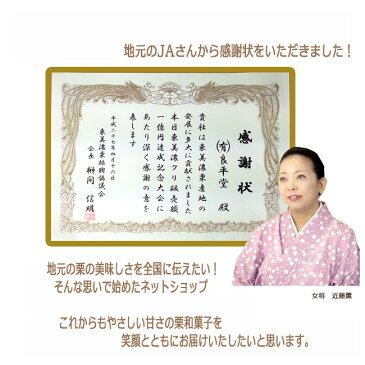 地元のJAさんから感謝状をいただきました！
感謝状
(有)良平堂 殿
貴社は東美濃栗産地の
発展に多大に貢献されました
本日東美濃クリ販売額
一億円達成記念大会に
あたり深く感謝の意を
表します
平成二十七年四月十六日
東美濃栗振興協議会
会長 榊間 信明
地元の栗の美味しさを全国に伝えたい！
そんな思いで始めたネットショップ
女将 近藤薫
これからもやさしい甘さの栗和菓子を
笑顔とともにお届けいたしたいと思います。